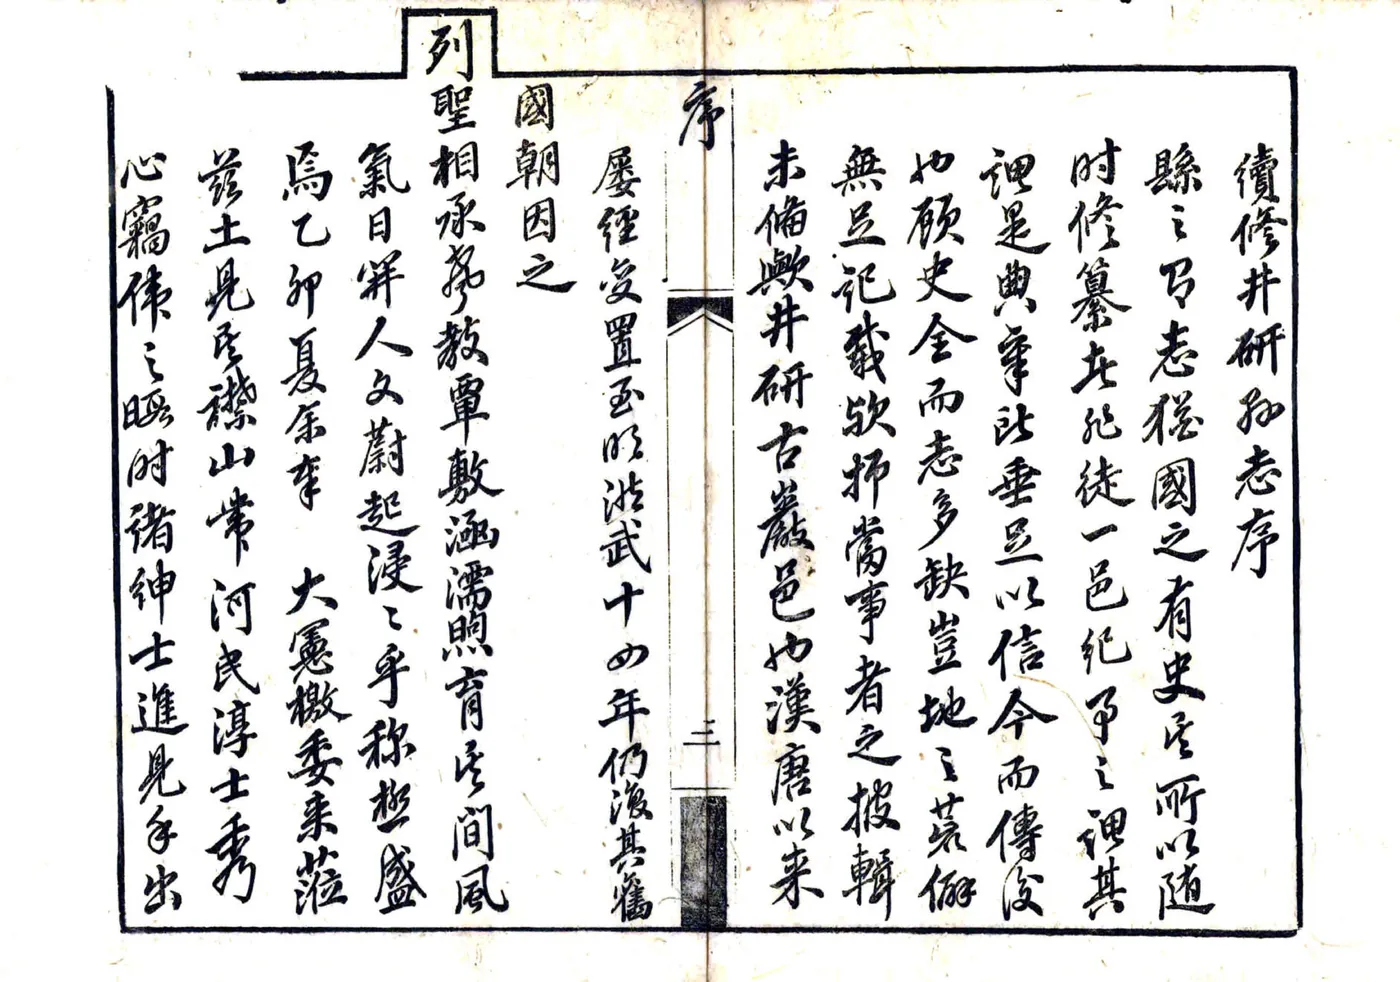 續修井研縣志序
縣之有志猶國之有史其所以隨
時修纂者非徒一邑紀事之謂其
謂是典章昭垂足以信今而傳後
也顧史全而志多缺豈地之荒僻
無足記載歟抑當事者之披輯
未備歟井研古巖邑也漢唐以来
序
三
屢經變置至明洪武十四年仍復其舊
國朝因之
列聖相承聲教覃敷涵濡煦育其間風
氣日開人文蔚起浸浸乎称極盛
焉乙卯夏余奉 大憲檄委来蒞
茲土見其襟山帶河民淳士秀
心竊偉之暇时諸紳士進見手出